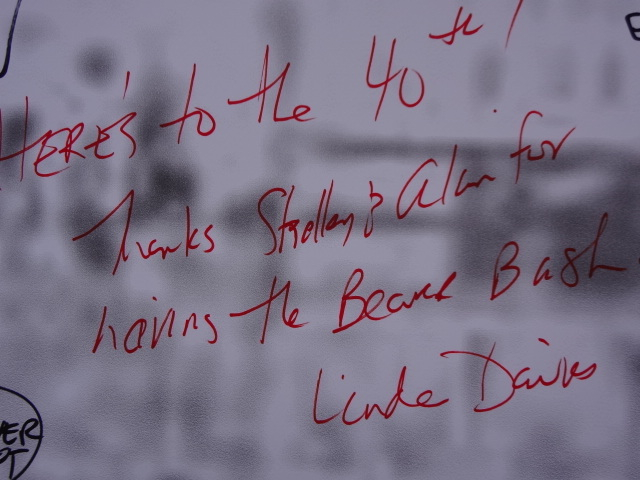 HERE'S to the 40th!
Thanks & Alan for
having the Beaver Bash.
Linda Davies
VER
PT